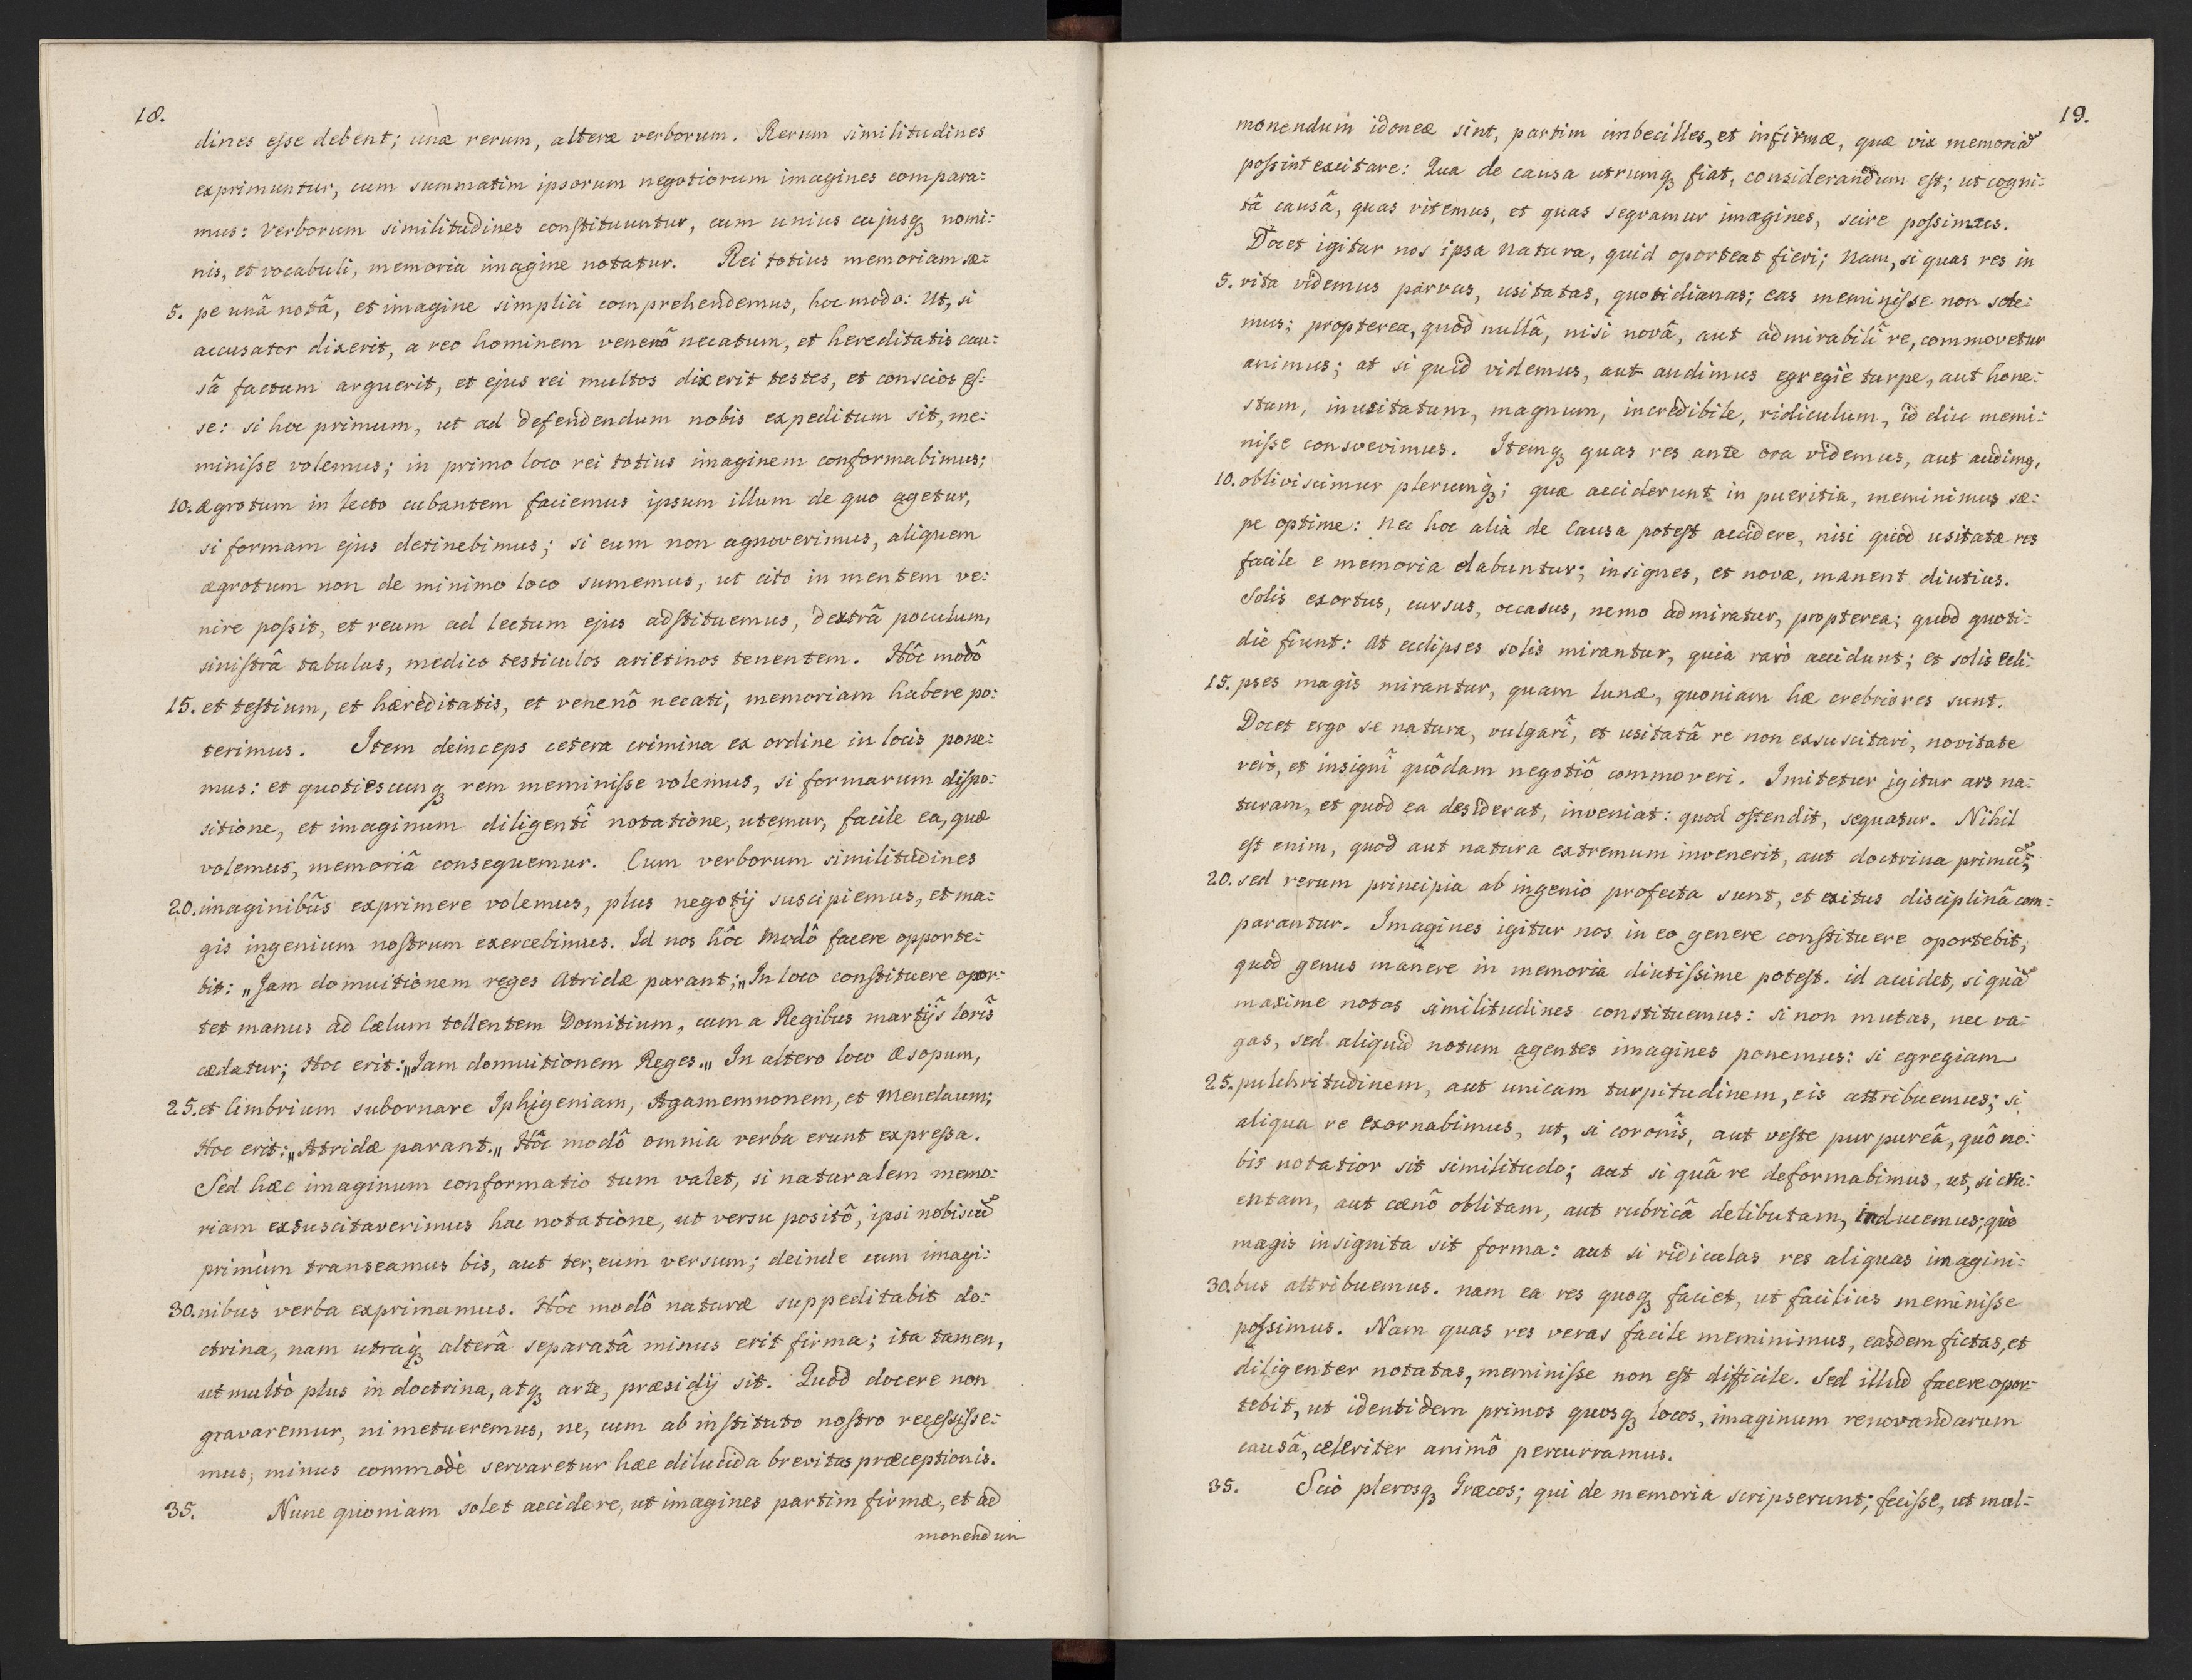 18.
dines eſse debent; unæ rerum, alteræ verborum. Rerum similitudines
exprimuntur, cum summatim ipsorum negotiorum imagines compara:
mus: verborum similitudines conſtituuntur, cum unius cujusqꝫ nomi:
nis, et vocabuli, memoria imagine notatur. Rei totius memoriam sæ:
5. pe unâ notâ, et imagine simplici comprehendemus, hoc modo: Ut, si
accusator dixerit, a reo hominem venenô necatum, et hereditatis cau:
sâ factum arguerit, et ejus rei multos dixerit testes, et conscios eſ:
se: si hoc primum, ut ad defendendum nobis expeditum sit, me:
miniſse volemus; in primo loco rei totius imaginem conformabimus;
10. ægrotum in lecto cubantem faciemus ipsum illum de quo agetur,
si formam ejus detinebimus; si eum non agnoverimus, aliquem
ægrotum non de minimo loco sumemus, ut cito in mentem ve:
nire poſsit, et reum ad lectum ejus adſtituemus, dextrâ poculum,
siniſtrâ tabulas, medico testiculos arietinos tenentem. Hôc modô
15. et teſtium, et hæreditatis, et venenô necati, memoriam habere po:
terimus. Item deinceps cetera crimina ex ordine in locis pone:
mus: et quotiescunqꝫ rem meminiſse volemus, si formarum diſpo:
sitione, et imaginum diligentî notatione, utemur, facile ea, quæ
volemus, memoriâ consequemur. Cum verborum similitudines
20. imaginibûs exprimere volemus, plus negotij suscipiemus, et ma:
gis ingenium noſtrum exercebimus. Id nos hôc modô facere opporte:
bit: „Jam domuitionem reges Atridæ parant; „In loco conſtituere opor:
tet manus ad Cælum tollentem Domitium, cum a Regibus martijs lorîs
cædatur; Hoc erit: „Jam domuitionem Reges.„ In altero loco Æsopum,
25. et Cimbrium subornare Iphigeniam, Agamemnonem, et Menelaum;
Hoc erit: „Atridæ parant.„ Hôc modô omnia verba erunt expreſsa.
Sed hæc imaginum conformatio tum valet, si naturalem memo:
riam exsuscitaverimus hac notatione, ut versu positô, ipsi nobiscũ
primùm transeamus bis, aut ter, eum versum; deinde cum imagi:
30. nibus verba exprimamus. Hôc modô naturæ suppeditabit do:
ctrina, nam utraqꝫ alterâ separatâ minus erit firma; ita tamen,
ut multò plus in doctrina, atqꝫ arte, præsidij sit. Quod docere non
gravaremur, ni metueremus, ne, cum ab inſtituto noſtro receſsiſse:
mus, minus commodè servaretur hæc dilucida brevitas præceptionis.
35. Nunc quoniam solet accidere, ut imagines partim firmæ, et ad
monendum
19.
monendum idoneæ sint, partim imbecilles, et infirmæ, quæ vix memoriã
poſsint excitare: Qua de causa utrumqꝫ fiat, considerandum eſt; ut cogni:
tâ causâ, quas vitemus, et quas seqvamur imagines, scire poſsimus.
Docet igitur nos ipsa Natura, quid oporteat fieri; Nam, si quas res in
5. vita videmus parvas, usitatas, quotidianas; eas meminiſse non sole:
mus; propterea, quod nullâ, nisi novâ, aut admirabilî re, commovetur
animus; at si quid videmus, aut audimus egregiè turpe, aut hone:
stum, inusitatum, magnum, incredibile, ridiculum, id diu memi:
niſse consvevimus. Itemqꝫ quas res ante ora videmus, aut audimꝯ,
10. obliviscimur plerumqꝫ; quæ acciderunt in pueritia, meminimus sæ:
pe optime: Nec hoc aliâ de Causa poteſt accidere, nisi quòd usitatæ res
facile e memoria elabuntur; insignes, et novæ, manent diutius.
Solis exortus, cursus, occasus, nemo admiratur, propterea; quod quoti:
die fiunt: At eclipses solis mirantur, quia rarò accidunt; et solis ecli:
15. pses magis mirantur, quam lunæ, quoniam hæ crebriores sunt.
Docet ergo se natura, vulgarî, et usitatâ re non exsuscitari, novitate
verò, et insignî quôdam negotiô commoveri. Imitetur igitur ars na:
turam, et quod ea desiderat, inveniat: quod oſtendit, sequatur. Nihil
eſt enim, quod aut natura extremum invenerit, aut doctrina primũ;
20. sed rerum principia ab ingenio profecta sunt, et exitus disciplinâ com:
parantur. Imagines igitur nos in eo genere conſtituere oportebit,
quod genus manere in memoria diutiſsime poteſt. id accidet, si quã
maxime notas similitudines constituemus: si non mutas, nec va:
gas, sed aliquid notum agentes imagines ponemus: si egregiam
25. pulchritudinem, aut unicam turpitudinem, eis attribuemus; si
aliqua re exornabimus, ut, si coronîs, aut veſte purpureâ, quô no:
bis notatior sit similitudo; aut si quâ re deformabimus, ut, si cru:
entam, aut cœnô oblitam, aut rubricâ delibutam, inducemus; quò
magis insignita sit forma: aut si ridiculas res aliquas imagini:
30. bus attribuemus. nam ea res quoqꝫ faciet, ut facilius meminiſse
poſsimus. Nam quas res veras facile meminimus, easdem fictas, et
diligenter notatas, meminiſse non eſt difficile. Sed illud facere opor:
tebit, ut identidem primos quosqꝫ locos, imaginum renovandarum
causâ, celeriter animô percurramus.
35. Scio plerosqꝫ Græcos; qui de memoria scripserunt; feciſse, ut mul: